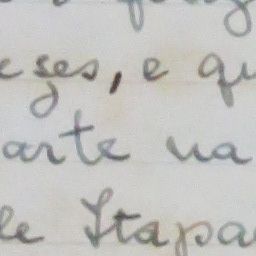 eses, e qu
arte na
de Itapa